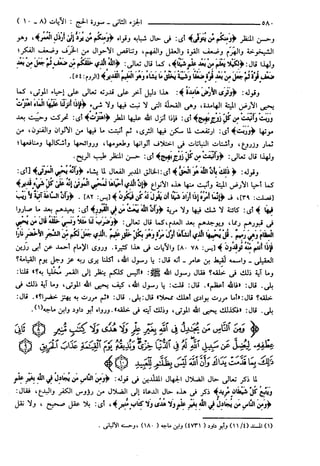 ٥٨٠ الجزء الثانى - سورة الحج : الآيات (٨ - ١٠)
وحسن المنظر ﴿وَمِنكُم مَّن يُتَوَفَّى﴾ أى: فى حال شبابه وقواه ﴿وَمِنكُم مَّن يُرَدُّ إِلَى أَرْذَلِ الْعُمُرِ﴾، وهو
الشيخوخة والهَرَم وضعف القوة والعقل والفهم، وتناقص الأحوال من الخَرَف وضعف الفكر؛
ولهذا قال: ﴿لِكَيْلَا يَعْلَمَ مِن بَعْدِ عِلْمٍ شَيْئًا﴾، كما قال تعالى: ﴿اللَّهُ الَّذِي خَلَقَكُم مِّن ضَعْفٍ ثُمَّ جَعَلَ مِن بَعْدِ
ضَعْفٍ قُوَّةً ثُمَّ جَعَلَ مِن بَعْدِ قُوَّةٍ ضَعْفًا وَشَيْبَةً يَخْلُقُ مَا يَشَاءُ وَهُوَ الْعَلِيمُ الْقَدِيرُ﴾ [الروم: ٥٤].
وقوله: ﴿وَتَرَى الْأَرْضَ هَامِدَةً﴾: هذا دليل آخر على قدرته تعالى على إحياء الموتى، كما
يحيى الأرض الميتة الهامدة، وهى القحلة التى لا نبت فيها ولا شىء ﴿فَإِذَا أَنزَلْنَا عَلَيْهَا الْمَاءَ اهْتَزَّتْ
وَرَبَتْ وَأَنبَتَتْ مِن كُلِّ زَوْجٍ بَهِيجٍ﴾ أى: فإذا أنزل الله عليها المطر ﴿اهْتَزَّتْ﴾ أى: تحركت وحييت بعد
موتها ﴿وَرَبَتْ﴾ أى: ارتفعت لما سكن فيها الثرى، ثم أنبتت ما فيها من الألوان والفنون، من
ثمار وزروع، وأشتات النباتات فى اختلاف ألوانها وطعومها، وروائحها وأشكالها ومنافعها؛
ولهذا قال تعالى: ﴿وَأَنبَتَتْ مِن كُلِّ زَوْجٍ بَهِيجٍ﴾ أى: حسن المنظر طيب الريح.
وقوله: ﴿ذَلِكَ بِأَنَّ اللَّهَ هُوَ الْحَقُّ﴾ أى: الخالق المدبر الفعال لما يشاء ﴿وَأَنَّهُ يُحْيِي الْمَوْتَى﴾ [أى:
كما أحيا الأرض الميتة وأنبت منها هذه الأنواع ﴿إِنَّ الَّذِي أَحْيَاهَا لَمُحْيِي الْمَوْتَى إِنَّهُ عَلَى كُلِّ شَيْءٍ قَدِيرٌ﴾
[فصلت: ٣٩]، فـ ﴿إِنَّمَا أَمْرُهُ إِذَا أَرَادَ شَيْئًا أَن يَقُولَ لَهُ كُن فَيَكُونُ﴾ [يس: ٨٢]. ﴿وَأَنَّ السَّاعَةَ آتِيَةٌ لَّا رَيْبَ
فِيهَا﴾ أى: كائنة لا شك فيها ولا مرية ﴿وَأَنَّ اللَّهَ يَبْعَثُ مَن فِي الْقُبُورِ﴾ أى: يعيدهم بعد ما صاروا
فى قبورهم رِمَمًا، ويوجدهم بعد العدم، كما قال تعالى: ﴿وَضَرَبَ لَنَا مَثَلًا وَنَسِيَ خَلْقَهُ قَالَ مَن يُحْيِي
الْعِظَامَ وَهِيَ رَمِيمٌ. قُلْ يُحْيِيهَا الَّذِي أَنشَأَهَا أَوَّلَ مَرَّةٍ وَهُوَ بِكُلِّ خَلْقٍ عَلِيمٌ. الَّذِي جَعَلَ لَكُم مِّنَ الشَّجَرِ الْأَخْضَرِ نَارًا
فَإِذَا أَنتُم مِّنْهُ تُوقِدُونَ﴾ [يس: ٧٨ ـ ٨٠] والآيات فى هذا كثيرة. وروى الإمام أحمد عن أبى رزين
العقيلى - واسمه لقيط بن عامر - أنه قال: يا رسول الله، أكلنا يرى ربه عز وجل يوم القيامة؟
وما آية ذلك فى خلقه؟ فقال رسول الله ﷺ: «أليس كلكم ينظر إلى القمر مُخْليا به؟» قلنا:
بلى. قال: «فالله أعظم». قال: قلت: يا رسول الله، كيف يحيى الله الموتى، وما آية ذلك فى
خلقه؟ قال: «أما مررت بوادى أهلك محلا» قال: بلى. قال: «ثم مررت به يهتز خضرا؟». قال:
بلى. قال: «فكذلك يحيى الله الموتى، وذلك آيته فى خلقه». ورواه أبو داود وابن ماجه(١).
﴿وَمِنَ النَّاسِ مَن يُجَادِلُ فِي اللَّهِ بِغَيْرِ عِلْمٍ وَلَا هُدًى وَلَا كِتَابٍ مُّنِيرٍ ۝ ثَانِيَ
عِطْفِهِ لِيُضِلَّ عَن سَبِيلِ اللَّهِ لَهُ فِي الدُّنْيَا خِزْيٌ وَنُذِيقُهُ يَوْمَ الْقِيَامَةِ عَذَابَ الْحَرِيقِ ۝
ذَلِكَ بِمَا قَدَّمَتْ يَدَاكَ وَأَنَّ اللَّهَ لَيْسَ بِظَلَّامٍ لِّلْعَبِيدِ ۝﴾
لما ذكر تعالى حال الضلال الجهال المقلدين فى قوله: ﴿وَمِنَ النَّاسِ مَن يُجَادِلُ فِي اللَّهِ بِغَيْرِ عِلْمٍ
وَيَتَّبِعُ كُلَّ شَيْطَانٍ مَّرِيدٍ﴾ ذكر فى هذه حال الدعاة إلى الضلال من رؤوس الكفر والبدع، فقال:
﴿وَمِنَ النَّاسِ مَن يُجَادِلُ فِي اللَّهِ بِغَيْرِ عِلْمٍ وَلَا هُدًى وَلَا كِتَابٍ مُّنِيرٍ﴾، أى: بلا عقل صحيح، ولا نقل
(١) المسند (٤/١١) وأبو داود (٤٧٣١) وابن ماجه (١٨٠)، وحسنه الألبانى.